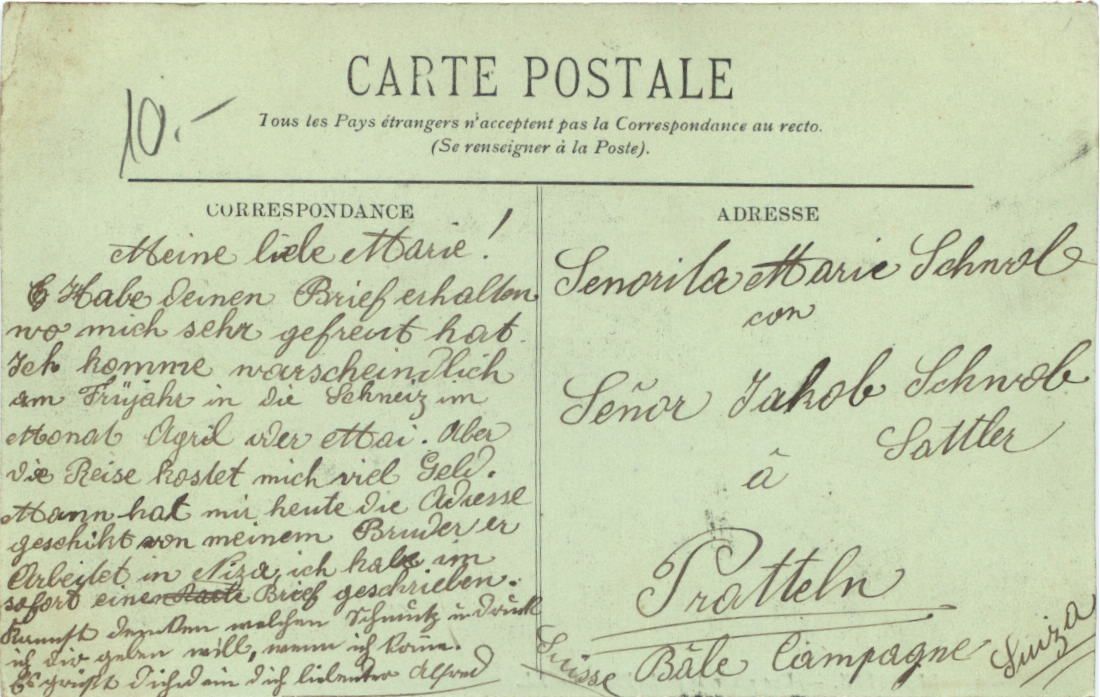 CARTE POSTALE
Tous les Pays étrangers n'acceptent pas la Correspondance au recto.
(Se renseigner à la Poste).
10.-
CORRESPONDANCE
Meine liebe Marie!
Habe deinen Brief erhalten
wo mich sehr gefreut hat.
Ich komme warscheindlich
am Früjahr in die Schweiz im
Monat April oder Mai. Aber
die Reise kostet mich viel Geld.
Mann hat mir heute die Adresse
geschikt von meinem Bruder er
Arbeitet in Niza, ich habe im
sofort einen Brief geschrieben.
Kannst denken welchen Schmutz u. druck
ich dir geben will, wenn ich komme.
Es grüßt Dich dein dich liebender Alfred
ADRESSE
Senorita Marie Schwob
con
Señor Jakob Schwob
Sattler
à
Pratteln
Suisse Bâle Campagne Suiza